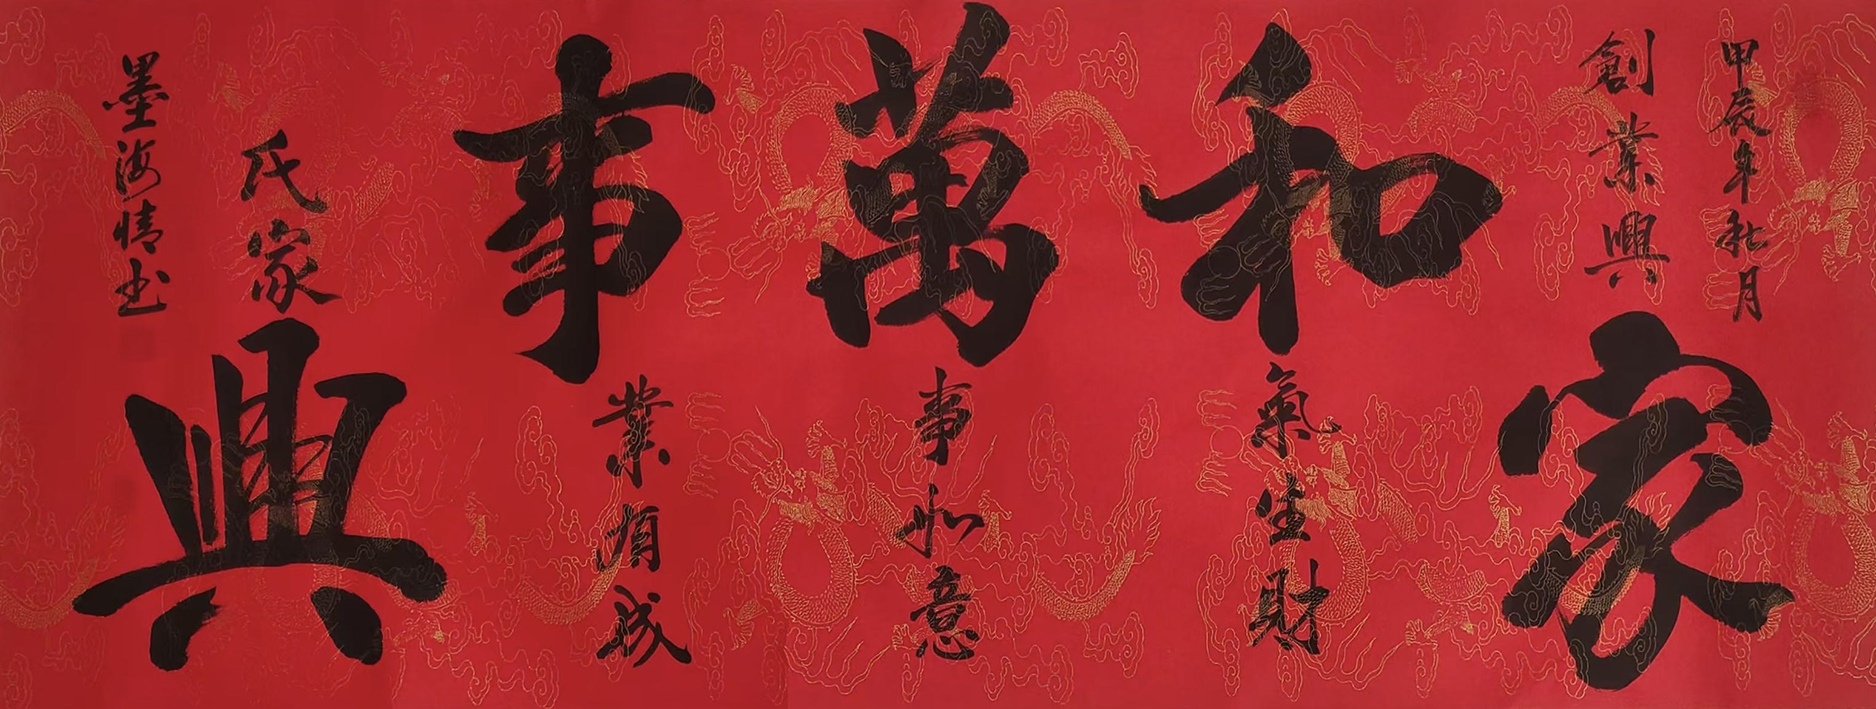 甲辰年秋月
創業興家
和氣生財
萬事如意
事業有成
氏家興
墨海情书